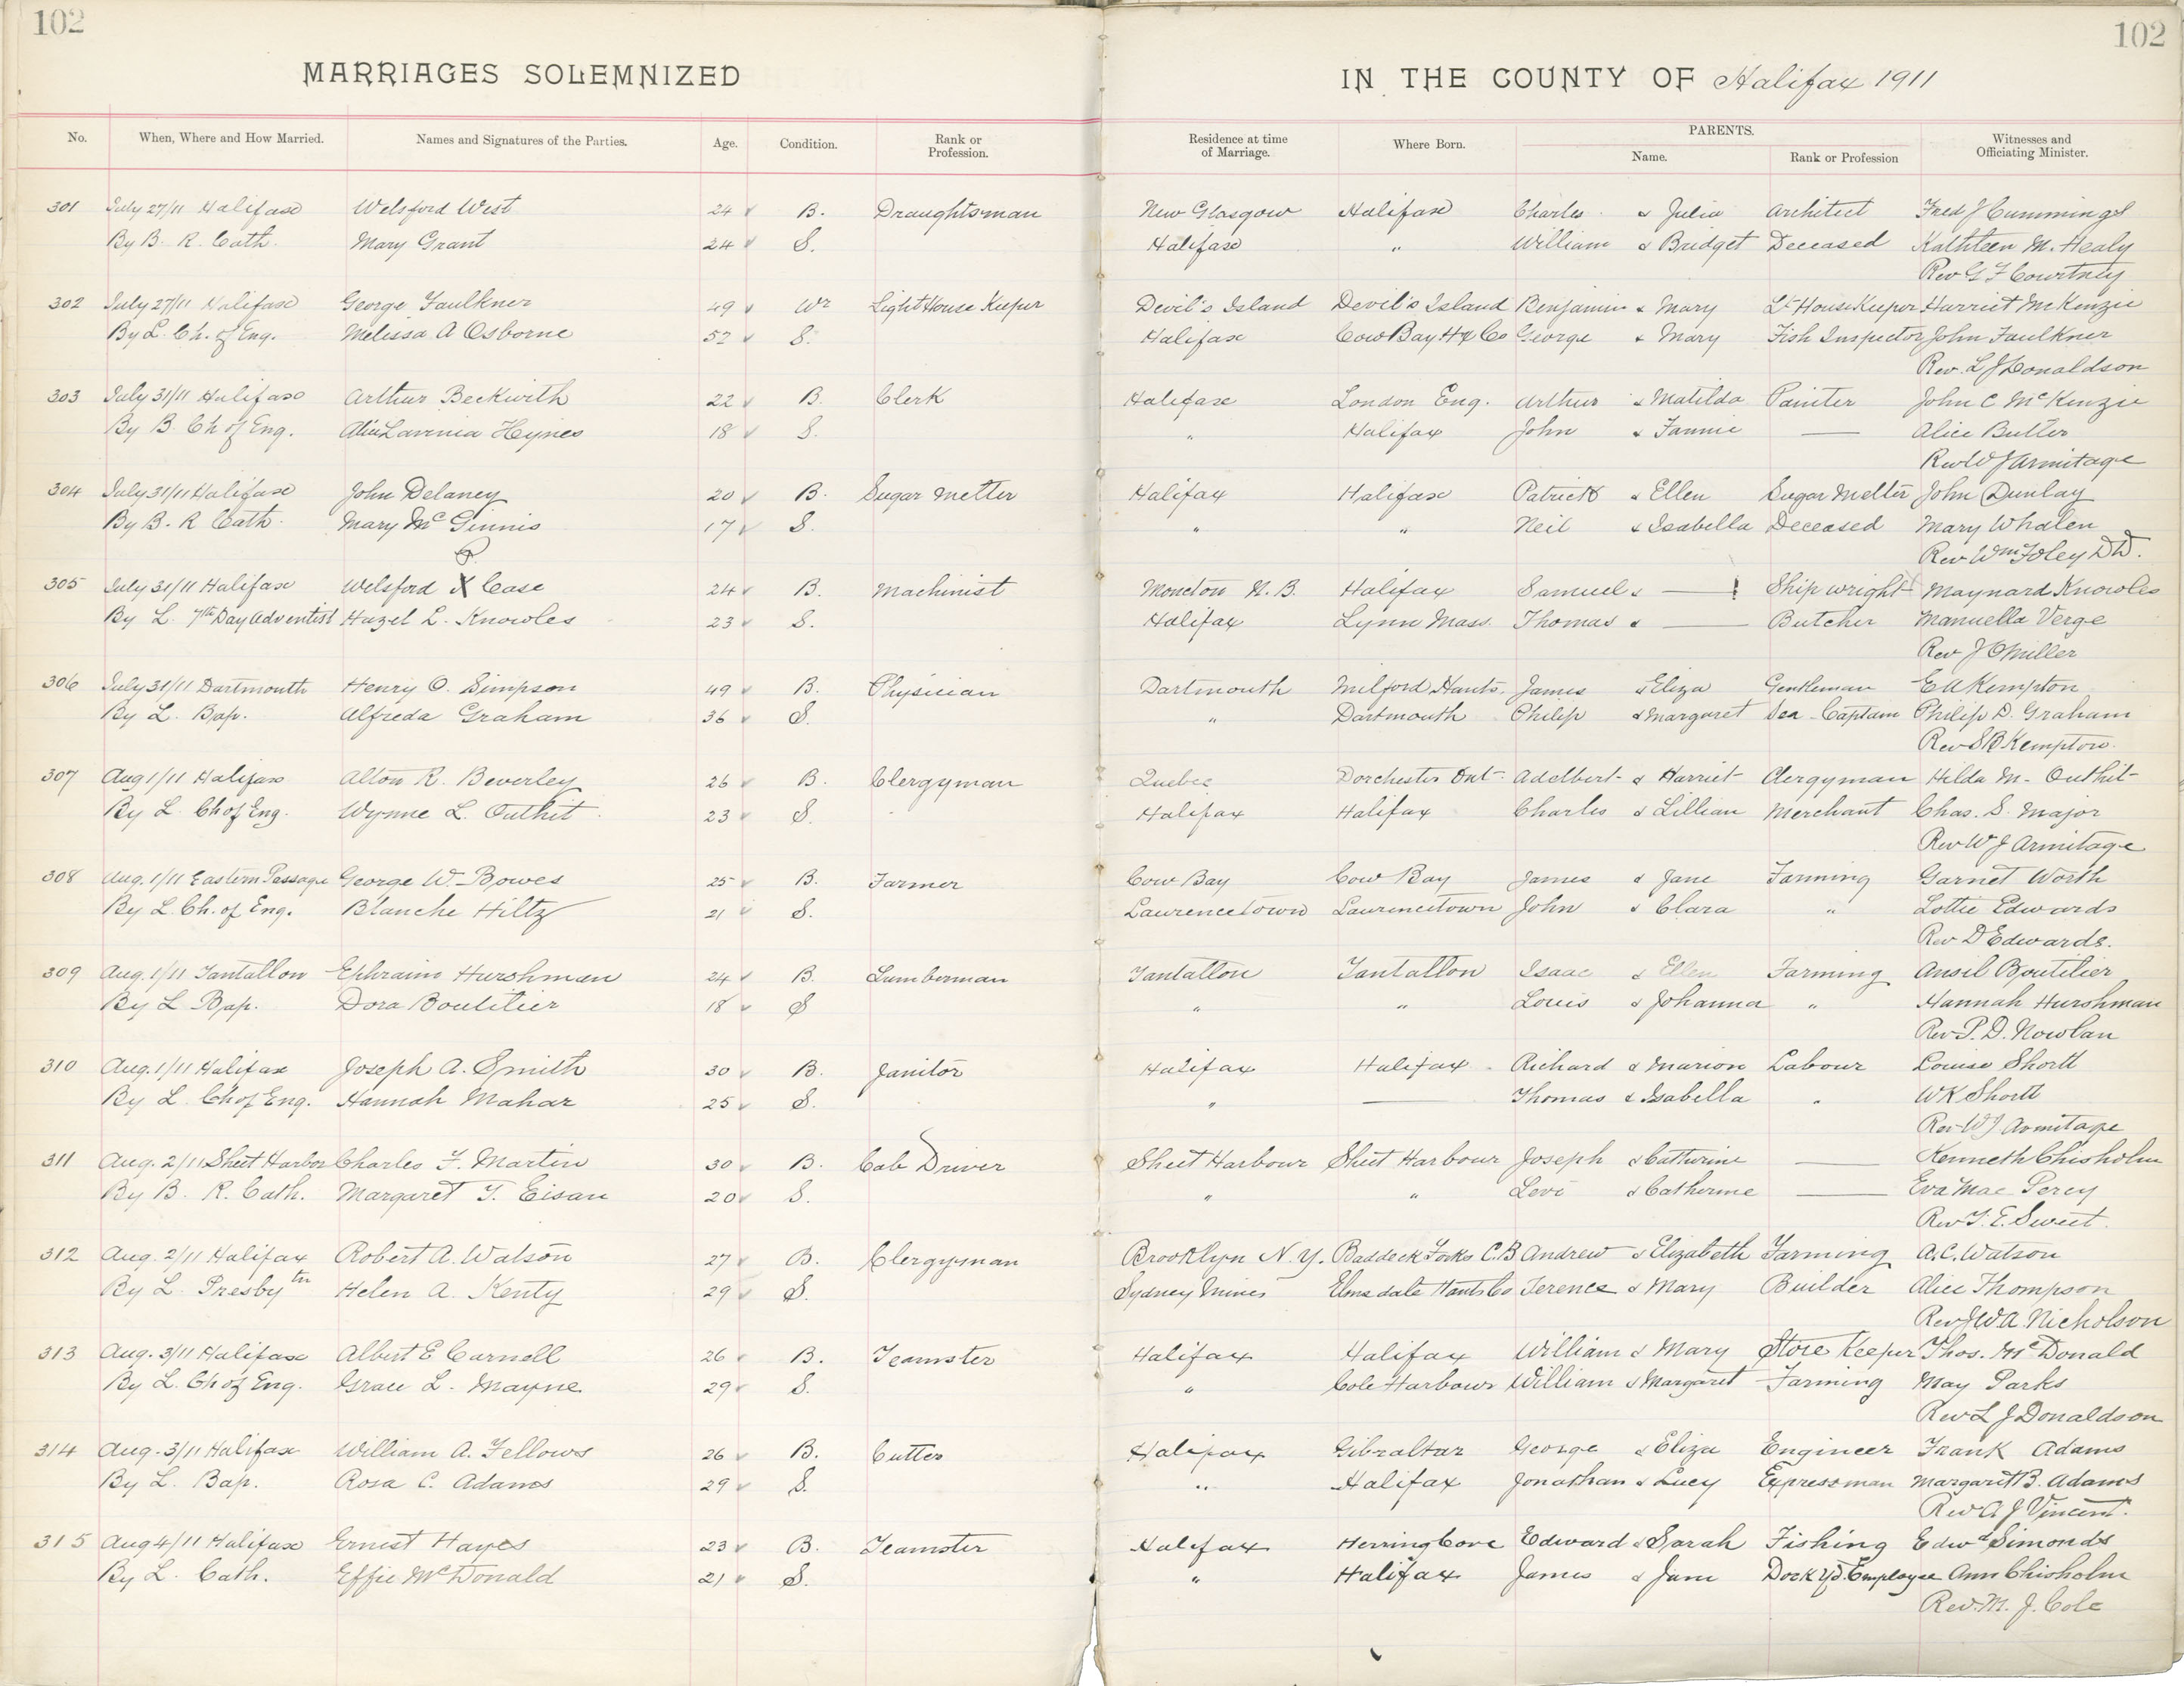 102 102
MARRIAGES SOLEMNIZED IN THE COUNTY OF Halifax 1911
No. When, Where and How Married. Names and Signatures of the Parties. Age. Condition. Rank or Profession. Residence at time of Marriage. Where Born. PARENTS. Name. Rank or Profession Witnesses and Officiating Minister.
301 July 27/11 Halifax Welsford West 24 B. Draughtsman New Glasgow Halifax Charles & Julia Architect Fred J Cummings
By B. R. Cath. Mary Grant 24 S. Halifax " William & Bridget Deceased Kathleen M. Healy
Rev G F Courtney
302 July 27/11 Halifax George Faulkner 49 Wr Light House Keeper Devil's Island Devil's Island Benjamin & Mary Lt House Keeper Harriet McKenzie
By L. Ch. of Eng. Melissa A Osborne 52 S. Halifax Cow Bay Hfx Co George & Mary Fish Inspector John Faulkner
Rev. L J Donaldson
303 July 31/11 Halifax Arthur Beckwith 22 B. Clerk Halifax London Eng. Arthur & Matilda Painter John C McKenzie
By B. Ch of Eng. Alice Lavinia Heynes 18 S. " Halifax John & Fannie — Alice Butler
Rev W J Armitage
304 July 31/11 Halifax John Delaney 20 B. Sugar Melter Halifax Halifax Patrick & Ellen Sugar Melter John Dunlay
By B. R Cath. Mary McGinnis 17 S. " " Neil & Isabella Deceased Mary Whalen
P. Rev Wm Foley D.D.
305 July 31/11 Halifax Welsford X Case 24 B. Machinist Moncton N.B. Halifax Samuel & — Ship wright Maynard Knowles
By L. 7th Day Adventist Hazel L. Knowles 23 S. Halifax Lynn Mass. Thomas & — Butcher Manuella Verge
Rev J O Miller
306 July 31/11 Dartmouth Henry O. Simpson 49 B. Physician Dartmouth Milford Hants. James & Eliza Gentleman E A Kempton
By L. Bap. Alfreda Graham 36 S. " Dartmouth Philip & Margaret Sea Captain Philip D. Graham
Rev S B Kempton.
307 Aug 1/11 Halifax Alton R. Beverley 26 B. Clergyman Quebec Dorchester Ont. Adelbert & Harriet Clergyman Hilda M. Outhit
By L. Ch of Eng. Wynne L. Outhit 23 S. Halifax Halifax Charles & Lillian Merchant Chas. S. Major
Rev W J Armitage
308 Aug. 1/11 Eastern Passage George W. Bowes 25 B. Farmer Cow Bay Cow Bay James & Jane Farming Garnet Worth
By L. Ch. of Eng. Blanche Hiltz 21 S. Laurencetown Laurencetown John & Clara " Lottie Edwards
Rev D Edwards.
309 Aug. 1/11 Tantallon Ephraim Hurshman 24 B. Lumberman Tantallon Tantallon Isaac & Ellen Farming Ansil Boutilier
By L Bap. Dora Boutilier 18 S " " Louis & Johanna " Hannah Hurshman
Rev P. D. Nowlan
310 Aug. 1/11 Halifax Joseph A. Smith 30 B. Janitor Halifax Halifax Richard & Marion Labour Louise Shortt
By L. Ch of Eng. Hannah Mahar 25 S. " — Thomas & Isabella " W K Shortt
Rev W J Armitage
311 Aug. 2/11 Sheet Harbor Charles F. Martin 30 B. Cab Driver Sheet Harbour Sheet Harbour Joseph & Catherine — Kenneth Chisholm
By B. R. Cath. Margaret T. Eisan 20 S. " " Levi & Catherine — Eva Mae Percy
Rev T. E. Sweet.
312 Aug. 2/11 Halifax Robert A. Watson 27 B. Clergyman Brooklyn N.Y. Baddeck Forks C.B Andrew & Elizabeth Farming A. C. Watson
By L. Presbytn Helen A. Kenty 29 S. Sydney Mines Elmsdale Hants Co Terence & Mary Builder Alice Thompson
Rev J W A. Nicholson
313 Aug. 3/11 Halifax Albert E Carnell 26 B. Teamster Halifax Halifax William & Mary Store Keeper Thos. McDonald
By L. Ch of Eng. Grace L. Mayne 29 S. " Cole Harbour William & Margaret Farming May Parks
Rev L J Donaldson
314 Aug. 3/11 Halifax William A. Fellows 26 B. Cutter Halifax Gibraltar George & Eliza Engineer Frank Adams
By L. Bap. Rosa C. Adams 29 S. " Halifax Jonathan & Lucy Expressman Margaret B. Adams
Rev A J Vincent.
315 Aug 4/11 Halifax Ernest Hayes 23 B. Teamster Halifax Herring Cove Edward & Sarah Fishing Edwd Simonds
By L. Cath. Effie McDonald 21 S. " Halifax James & Jane Dock Yd. Employee Ann Chisholm
Rev. M. J. Cole